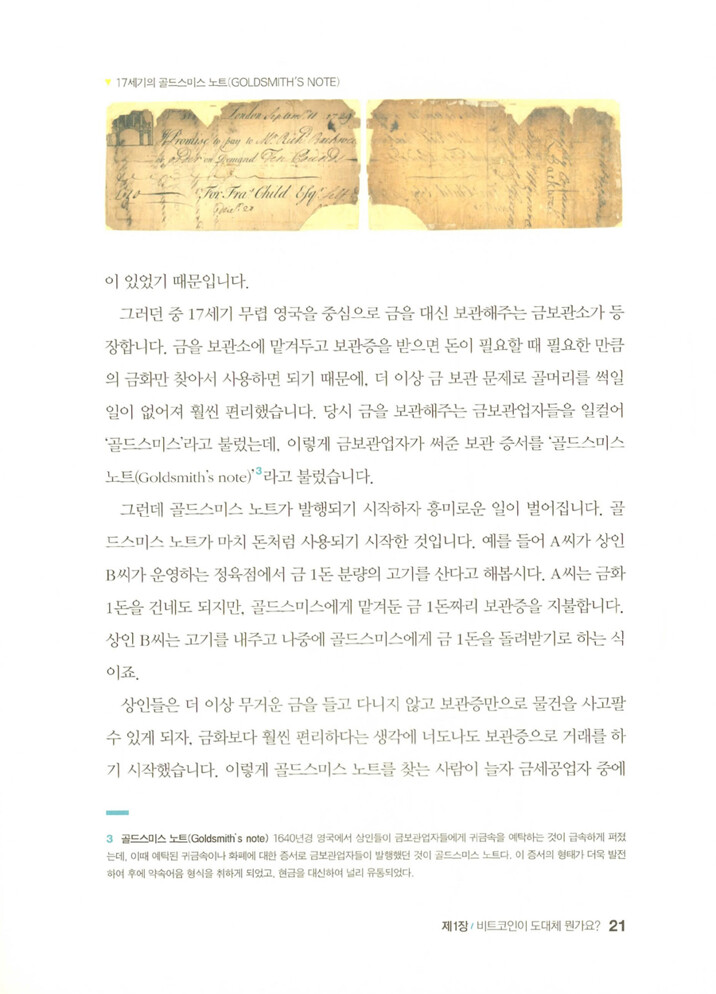 ▼ 17세기의 골드스미스 노트(GOLDSMITH'S NOTE)
London Septem
Promise to pay to Mr Rich
on Demand
For Fra Child Esqr
Backwell
이 있었기 때문입니다.
그러던 중 17세기 무렵 영국을 중심으로 금을 대신 보관해주는 금보관소가 등
장합니다. 금을 보관소에 맡겨두고 보관증을 받으면 돈이 필요할 때 필요한 만큼
의 금화만 찾아서 사용하면 되기 때문에, 더 이상 금 보관 문제로 골머리를 썩일
일이 없어져 훨씬 편리했습니다. 당시 금을 보관해주는 금보관업자들을 일컬어
‘골드스미스’라고 불렀는데, 이렇게 금보관업자가 써준 보관 증서를 ‘골드스미스
노트(Goldsmith's note)’3라고 불렀습니다.
그런데 골드스미스 노트가 발행되기 시작하자 흥미로운 일이 벌어집니다. 골
드스미스 노트가 마치 돈처럼 사용되기 시작한 것입니다. 예를 들어 A씨가 상인
B씨가 운영하는 정육점에서 금 1돈 분량의 고기를 산다고 해봅시다. A씨는 금화
1돈을 건네도 되지만, 골드스미스에게 맡겨둔 금 1돈짜리 보관증을 지불합니다.
상인 B씨는 고기를 내주고 나중에 골드스미스에게 금 1돈을 돌려받기로 하는 식
이죠.
상인들은 더 이상 무거운 금을 들고 다니지 않고 보관증만으로 물건을 사고팔
수 있게 되자, 금화보다 훨씬 편리하다는 생각에 너도나도 보관증으로 거래를 하
기 시작했습니다. 이렇게 골드스미스 노트를 찾는 사람이 늘자 금세공업자 중에
3 골드스미스 노트(Goldsmith's note) 1640년경 영국에서 상인들이 금보관업자들에게 귀금속을 예탁하는 것이 급속하게 퍼졌
는데, 이때 예탁된 귀금속이나 화폐에 대한 증서로 금보관업자들이 발행했던 것이 골드스미스 노트다. 이 증서의 형태가 더욱 발전
하여 후에 약속어음 형식을 취하게 되었고, 현금을 대신하여 널리 유통되었다.
제1장 / 비트코인이 도대체 뭔가요? 21